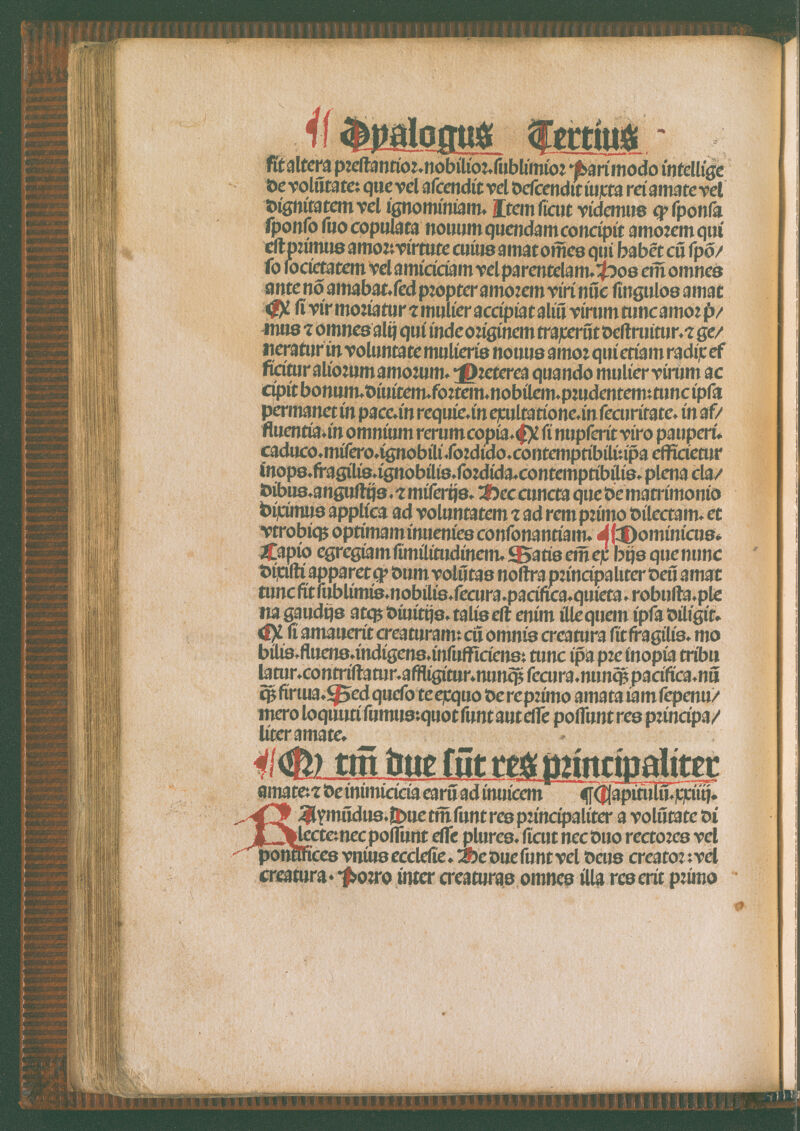 Dyalogus Tertius
fit altera prestantior. nobilior. sublimior. Pari modo intellige
de volūtate: que vel ascendit vel descendit iuxta rei amate vel
dignitatem vel ignominiam. Item sicut videmus ꝙ sponsa
sponso suo copulata nouum quendam concipit amorem qui
est primus amor: virtute cuius amat om̄es qui habēt cū spō/
so societatem vel amiciciam vel parentelam. Hos em̄ omnes
ante nō amabat. sed propter amorem viri nūc singulos amat
Qꝛ si vir moriatur ⁊ mulier accipiat aliū virum tunc amor p̓/
mus ⁊ omnes alij qui inde originem traxerūt destruitur. ⁊ ge/
neratur in voluntate mulieris nouus amor qui etiam radix ef
ficitur aliorum amorum. Preterea quando mulier virum ac
cipit bonum. diuitem. fortem. nobilem. prudentem: tunc ipsa
permanet in pace. in requie. in exultatione. in securitate. in af/
fluentia. in omnium rerum copia. Qꝛ si nupserit viro pauperi.
caduco. misero. ignobili. sordido. contemptibili: ip̄a efficietur
inops. fragilis. ignobilis. sordida. contemptibilis. plena cla/
dibus. angustijs. ⁊ miserijs. Hec cuncta que de matrimonio
diximus applica ad voluntatem ⁊ ad rem primo dilectam. et
vtrobiqꝫ optimam inuenies consonantiam. ¶ Dominicus.
Capio egregiam similitudinem. Satis em̄ ex hijs que nunc
dixisti apparet ꝙ dum volūtas nostra principaliter deū amat
tunc fit sublimis. nobilis. secura. pacifica. quieta. robusta. ple
na gaudijs atqꝫ diuitijs. talis est enim ille quem ipsa diligit.
Qꝛ si amauerit creaturam: cū omnis creatura sit fragilis. mo
bilis. fluens. indigens. insufficiens: tunc ip̄a pre inopia tribu
latur. contristatur. affligitur. nunq̄ꝫ secura. nunq̄ꝫ pacifica. nū
q̄ꝫ firma. Sed queso te exquo de re primo amata iam sepenu/
mero loquuti sumus: quot sunt aut esse possunt res principa/
liter amate.
¶ Q tm̄ due sūt res principaliter
amate: ⁊ de inimicicia earū ad inuicem ¶ Capitulū. xxiiij.
RAymūdus. Due tm̄ sunt res principaliter a volūtate di
lecte: nec possunt esse plures. sicut nec duo rectores vel
pontifices vnius ecclesie. He due sunt vel deus creator: vel
creatura. Porro inter creaturas omnes illa res erit primo